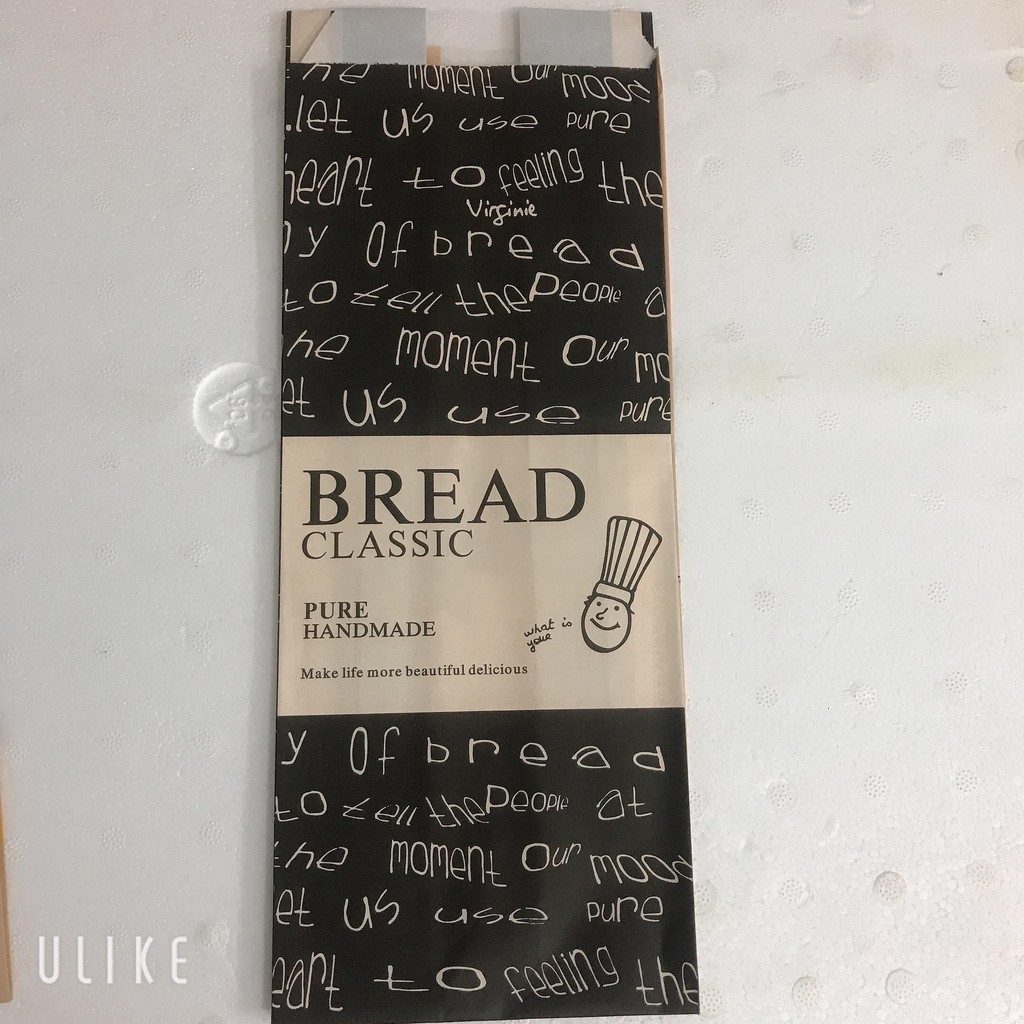 he moment Our mood
.let us use pure
heart to feeling the
Virginie
y Of bread
to tell the People a
he moment Our mo
et us use pure
BREAD
CLASSIC
PURE
HANDMADE
what is
your
Make life more beautiful delicious
y Of bread
to tell the People at
the moment Our mood
et us use pure
eart to feeling the
ULIKE